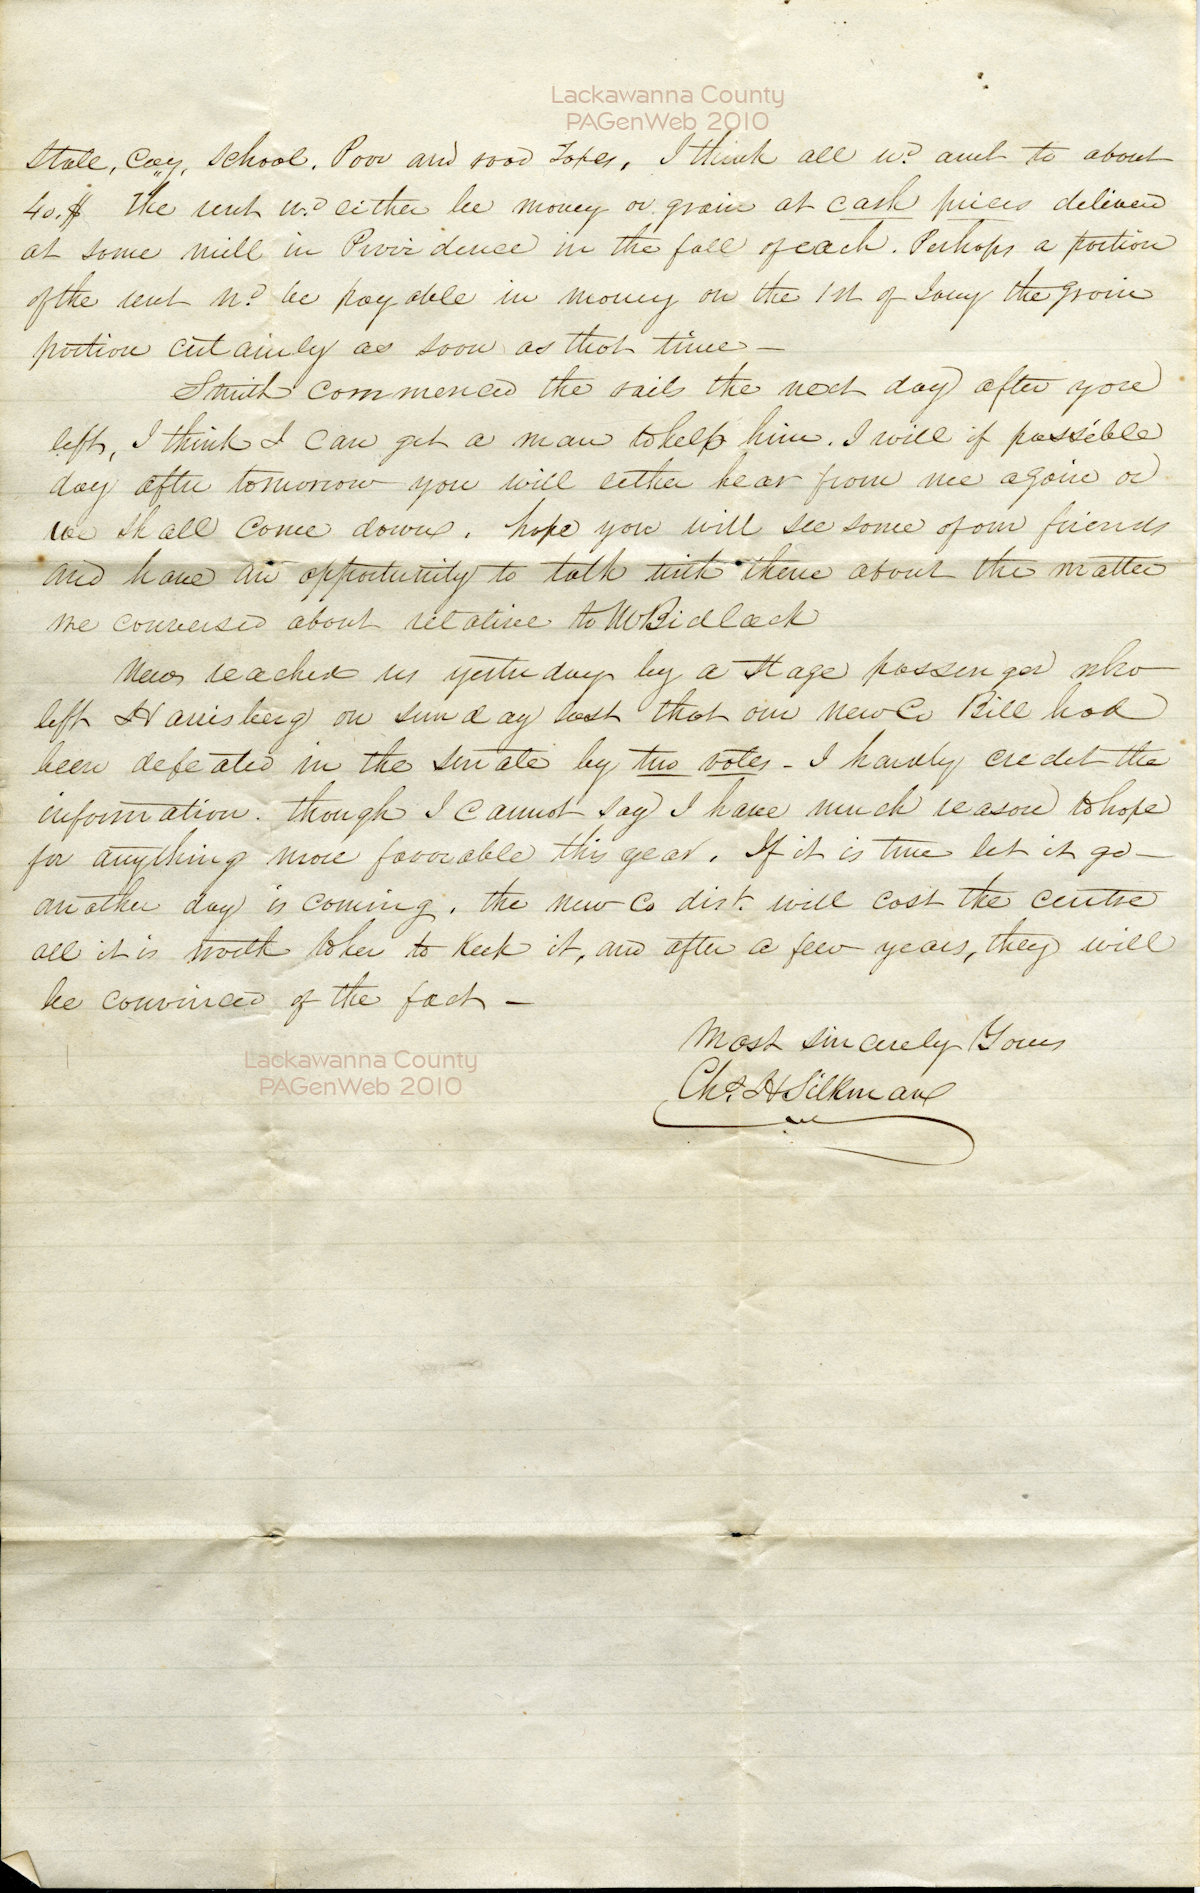 Lackawanna County
PAGenWeb 2010
State, Coy, School, Poor and road Taxes, I think all wd amt to about
40.$ The rent wd either be money or grain at cash prices delivered
at some mill in Providence in the fall of each. Perhaps a portion
of the rent wd be payable in money on the 1st of Jany the grain
portion certainly as soon as that time –
Smith commenced the rails the next day after you
left, I think I can get a man to help him. I will if possible
day after tomorrow you will either hear from me again or
we shall come down. hope you will see some of our friends
and have an opportunity to talk with them about the matter
we conversed about relative to Bidlack
News reached us yesterday by a Stage passenger who
left Harrisberg on sunday last that our New Co Bill had
been defeated in the senate by two votes – I hardly credit the
information. though I cannot say I have much reason to hope
for anything more favorable this year. If it is true let it go –
another day is coming. the new Co dist. will cost the centre
all it is worth to her to keek it, and after a few years, they will
be convinced of the fact –
Most sincerely Yours
Chs. H Silkman
Lackawanna County
PAGenWeb 2010